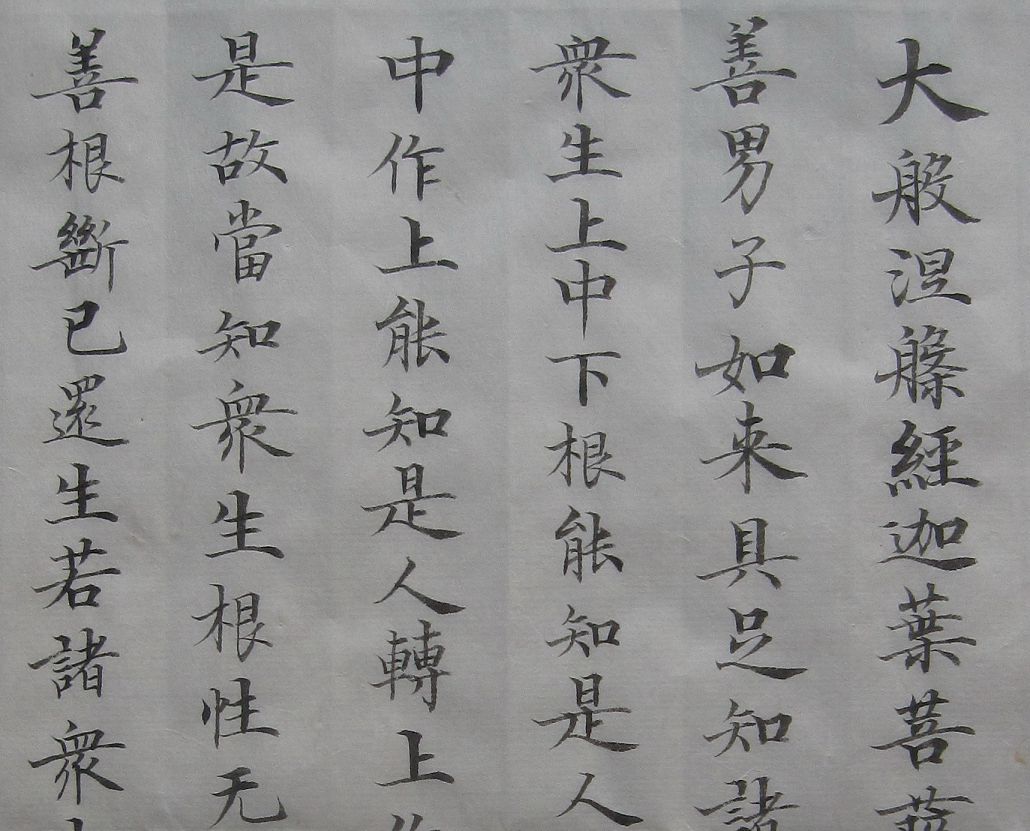 大般涅槃經迦葉菩薩
善男子如来具足知諸
衆生上中下根能知是人
中作上能知是人轉上作
是故當知衆生根性无
善根斷已還生若諸衆